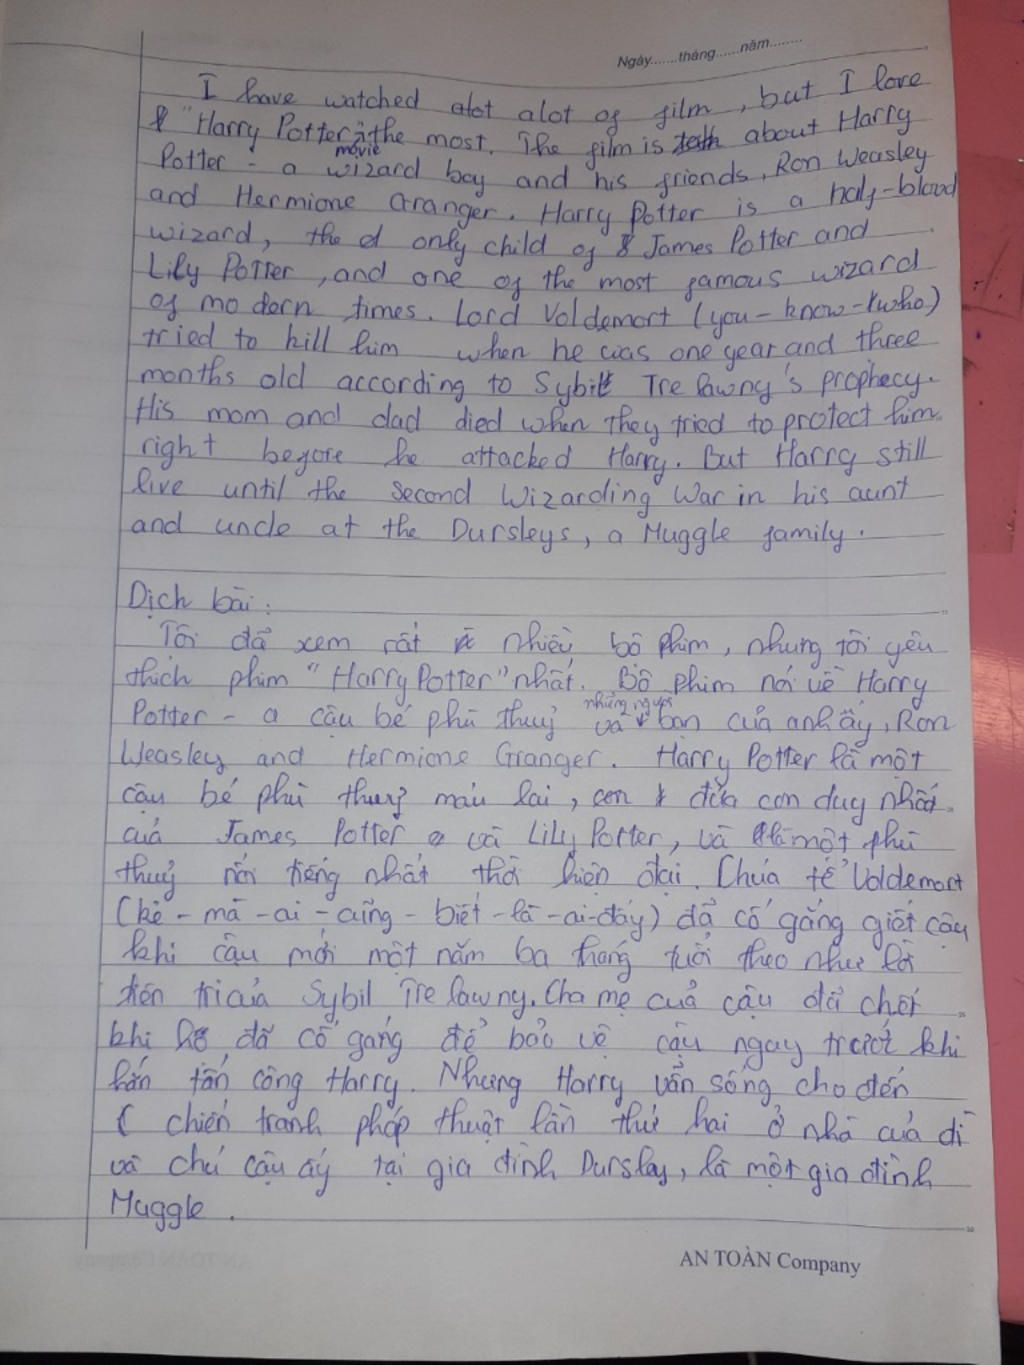 Ngày.......tháng......năm........
I have watched alot alot of film, but I love
"Harry Potter" the most. The film is about Harry
movie
Potter - a wizard boy and his friends, Ron Weasley
and Hermione Granger. Harry Potter is a half-blood
wizard, the only child of James Potter and
Lily Potter, and one of the most famous wizard
of modern times. Lord Voldemort (you-know-who)
tried to kill him when he was one year and three
months old according to Sybill Trelawny's prophecy.
His mom and dad died when they tried to protect him
right before he attacked Harry. But Harry still
live until the second Wizarding War in his aunt
and uncle at the Dursleys, a Muggle family.
Dịch bài:
Tôi đã xem rất nhiều bộ phim, nhưng tôi yêu
thích phim "Harry Potter" nhất. Bộ phim nói về Harry
những người
Potter - a cậu bé phù thuỷ và bạn của anh ấy, Ron
Weasley and Hermione Granger. Harry Potter là một
cậu bé phù thuỷ máu lai, con đứa con duy nhất
của James Potter và Lily Potter, và là một phù
thuỷ nổi tiếng nhất thời hiện đại. Chúa tể Voldemort
(kẻ-mà-ai-cũng-biết-là-ai-đấy) đã cố gắng giết cậu
khi cậu mới một năm ba tháng tuổi theo như lời
tiên tri của Sybil Trelawny. Cha mẹ của cậu đã chết
khi họ đã cố gắng để bảo vệ cậu ngay trước khi
hắn tấn công Harry. Nhưng Harry vẫn sống cho đến
chiến tranh pháp thuật lần thứ hai ở nhà của dì
và chú cậu ấy tại gia đình Dursley, là một gia đình
Muggle.
AN TOÀN Company